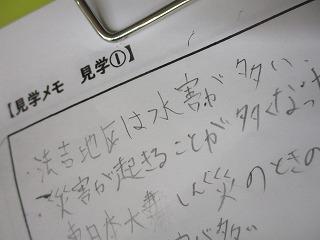 【見学メモ 見学①】
・法吉地区は水害が多い.
・災害が起きることが多くなっ
東日本大震しんくく災のときの
が多